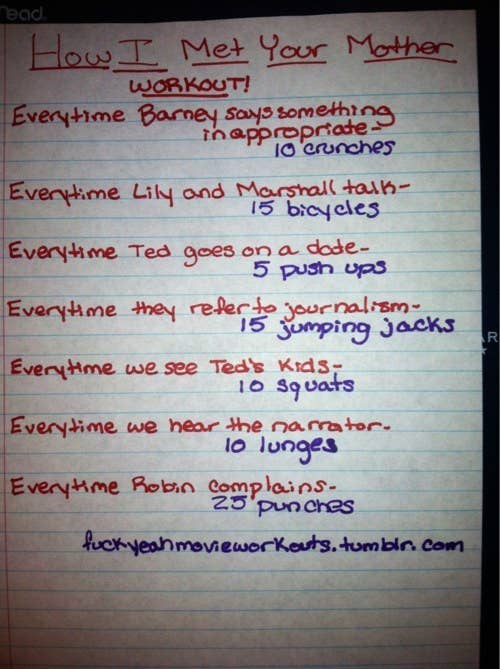 Mead
How I Met Your Mother
WORKOUT!
Everytime Barney says something
inappropriate-
10 crunches
Everytime Lily and Marshall talk-
15 bicycles
Everytime Ted goes on a date-
5 push ups
Everytime they refer to journalism-
15 jumping jacks
Everytime we see Ted's Kids-
10 squats
Everytime we hear the narrator-
10 lunges
Everytime Robin complains-
25 punches
fuckyeahmovieworkouts.tumblr.com